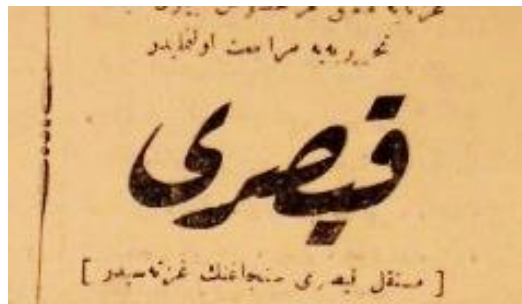 تحريريه‌يه مراجعت اولنمليدر
قيصرى
[ مستقل قيصرى سنجاغنك غزته‌سيدر ]